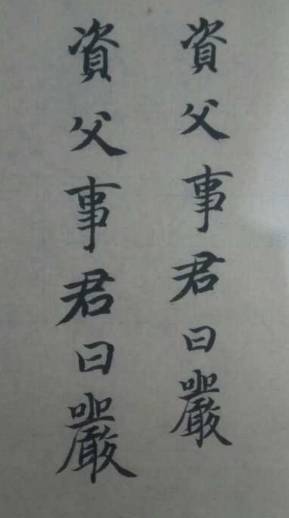 資父事君曰嚴
資父事君曰嚴